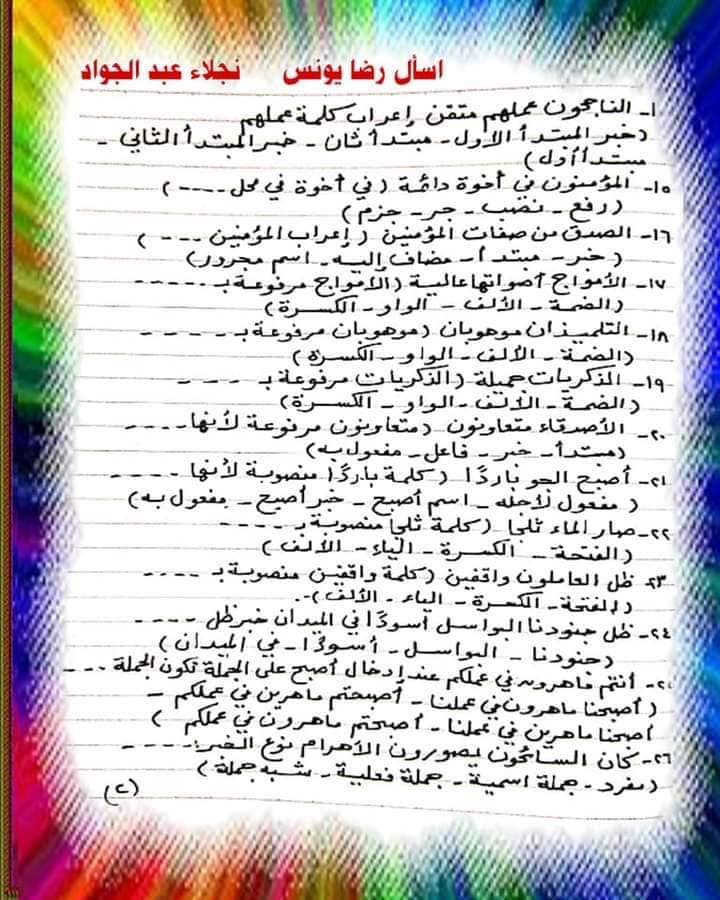 اسأل رضا يونس نجلاء عبد الجواد
١- الناجحون عملهم متقن. إعراب كلمة عملهم
(خبر المبتدأ الأول - مبتدأ ثان - خبر المبتدأ الثاني -
مبتدأ أول)
١٥- المؤمنون في أخوة دائمة (في أخوة في محل ----)
(رفع - نصب - جر - جزم)
١٦- الصدق من صفات المؤمنين (إعراب المؤمنين ----)
(خبر - مبتدأ - مضاف إليه - اسم مجرور)
١٧- الأمواج أصواتها عالية (الأمواج مرفوعة بـ -----
(الضمة - الألف - الواو - الكسرة)
١٨- التلميذان موهوبان (موهوبان مرفوعة بـ ----
(الضمة - الألف - الواو - الكسرة)
١٩- الذكريات جميلة (الذكريات مرفوعة بـ ----
(الضمة - الألف - الواو - الكسرة)
٢٠- الأصدقاء متعاونون (متعاونون مرفوعة لأنها ----
(مبتدأ - خبر - فاعل - مفعول به)
٢١- أصبح الجو باردًا (كلمة باردًا منصوبة لأنها ----
(مفعول لأجله - اسم أصبح - خبر أصبح - مفعول به)
٢٢- صار الماء ثلجا (كلمة ثلجا منصوبة بـ ----
(الفتحة - الكسرة - الياء - الألف)
٢٣- ظل العاملون واقفين (كلمة واقفين منصوبة بـ ----
(الفتحة - الكسرة - الياء - الألف) -.
٢٤- ظل جنودنا البواسل أسودًا في الميدان خبر ظل ----
(جنودنا - البواسل - أسودًا - في الميدان)
٢- أنتم ماهرون في عملكم عند إدخال أصبح على الجملة تكون الجملة ----
(أصبحنا ماهرون في عملنا - أصبحتم ماهرين في عملكم -
أصبحنا ماهرين في عملنا - أصبحتم ماهرون في عملكم)
٢٦- كان السائحون يصورون الأهرام نوع الخبر: ----
(مفرد - جملة اسمية - جملة فعلية - شبه جملة)
(٢)